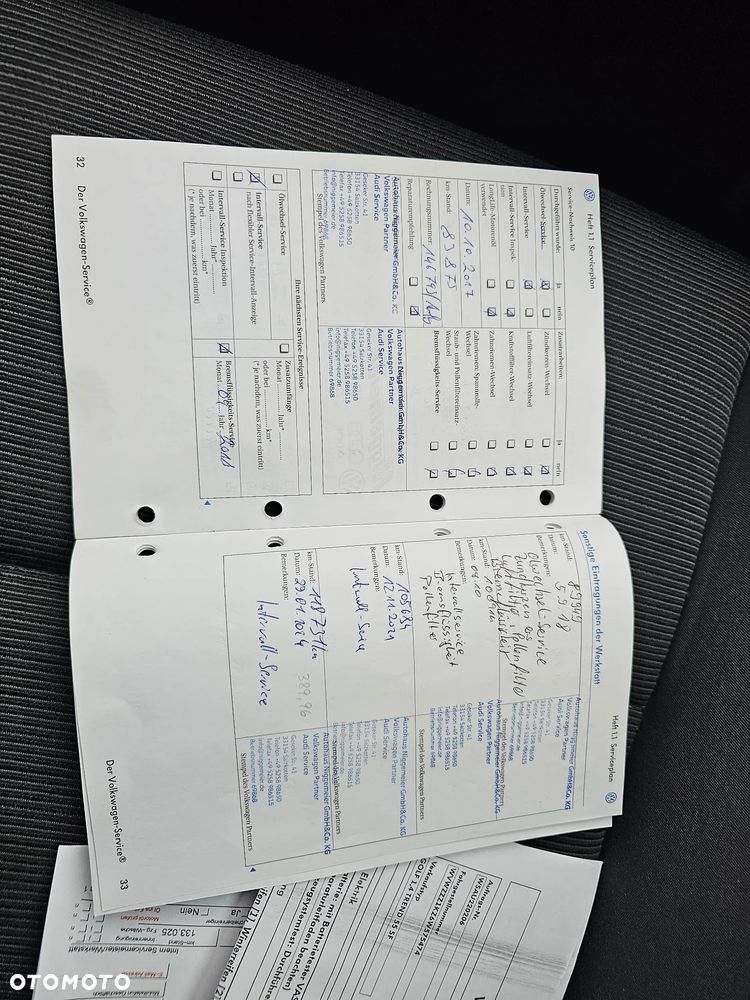 Heft 1.1 Serviceplan
Service-Nachweis 10
Durchgeführt wurde: ja nein
Ölwechsel-Service
Intervall-Service
Intervall-Service Inspektion
LongLife-Motorenöl verwendet
Datum: 10.10.2017
km-Stand: 83875
Rechnungsnummer:
Reparaturempfehlung
Autohaus Niggemeier GmbH&Co. KG
Volkswagen Partner
Audi Service
Geseker Str. 41
33154 Salzkotten
Telefon +49 5258 98650
Telefax +49 5258 986515
info@niggemeier.de
Betriebsnummer 69868
Stempel des Volkswagen Partners
Zusatzarbeiten: ja nein
Zündkerzen-Wechsel
Luftfiltereinsatz-Wechsel
Kraftstofffilter-Wechsel
Zahnriemen-Wechsel
Zahnriemen: Spannrolle-
Wechsel
Staub- und Pollenfiltereinsatz-
Wechsel
Bremsflüssigkeits-Service
Autohaus Niggemeier GmbH&Co. KG
Volkswagen Partner
Audi Service
Geseker Str. 41
33154 Salzkotten
Telefon +49 5258 98650
Telefax +49 5258 986515
info@niggemeier.de
Betriebsnummer 69868
Ihre nächsten Service-Ereignisse
Ölwechsel-Service
Intervall-Service
nach flexibler Service-Intervall-Anzeige
Intervall-Service Inspektion
Monat Jahr*
oder bei km*
(* je nachdem, was zuerst eintritt)
Zusatzumfänge
Monat Jahr*
oder bei km*
(* je nachdem, was zuerst eintritt)
Bremsflüssigkeits-Service
Monat 09 Jahr 2018
32 Der Volkswagen-Service®
Heft 1.1 Serviceplan
Sonstige Eintragungen der Werkstatt
km-Stand: 89949
Datum: 5.9.18
Bemerkungen:
Ölwechsel-Service
Zündkerzen es
Luftfilter, Pollenfilter
Bremsflüssigkeit
Autohaus Niggemeier GmbH&Co. KG
Volkswagen Partner
Audi Service
Geseker Str. 41
33154 Salzkotten
Telefon +49 5258 98650
Telefax +49 5258 986515
info@niggemeier.de
Betriebsnummer 69868
Stempel des Volkswagen Partners
km-Stand:
Datum:
Bemerkungen:
Intervallservice
Bremsflüssigkeit
Pollenfilter
Autohaus Niggemeier GmbH&Co. KG
Volkswagen Partner
Audi Service
Geseker Str. 41
33154 Salzkotten
Telefon +49 5258 98650
Telefax +49 5258 986515
info@niggemeier.de
Betriebsnummer 69868
Stempel des Volkswagen Partners
km-Stand: 105684
Datum: 12.11.2021
Bemerkungen:
Intervall-Service
Autohaus Niggemeier GmbH&Co. KG
Volkswagen Partner
Audi Service
Geseker Str. 41
33154 Salzkotten
Telefon +49 5258 98650
Telefax +49 5258 986515
info@niggemeier.de
Betriebsnummer 69868
Stempel des Volkswagen Partners
km-Stand: 118731km
Datum: 29.01.2024 389,96
Bemerkungen:
Intervall-Service
Autohaus Niggemeier GmbH&Co. KG
Volkswagen Partner
Audi Service
Geseker Str. 41
33154 Salzkotten
Telefon +49 5258 98650
Telefax +49 5258 986515
info@niggemeier.de
Betriebsnummer 69868
Stempel des Volkswagen Partners
Der Volkswagen-Service® 33
Auftrags-Nr.
Fahrgestellnummer
Verkaufstyp
Elektrik
Batterie: mit Batterietester
beachten)
Durchführen
Winterreifen
Ja
Nein
km-Stand
133.025
Innenreinigung
Frg.-Wäsche
Intern Servicemeister/Werkstatt
OTOMOTO